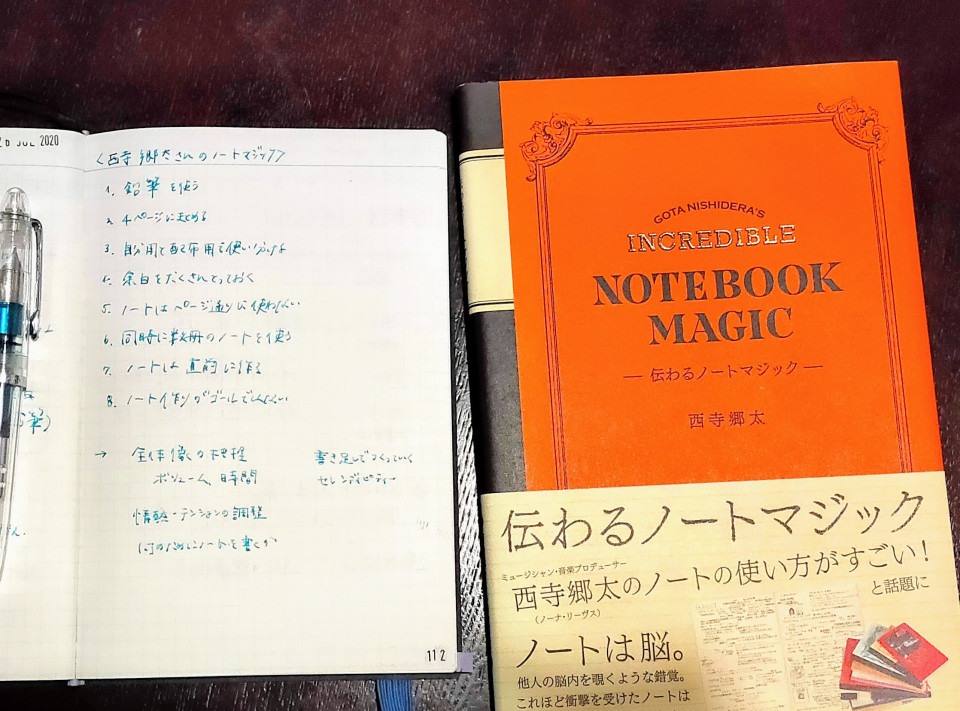 26 JUL 2020
〈西寺郷太さんのノートマジック〉
1. 鉛筆を使う
2. 4ページにまとめる
3. 自分用と配布用を使い分ける
4. 余白をたくさんとっておく
5. ノートはページ通りに使わない
6. 同時に数冊のノートを使う
7. ノートは直前に作る
8. ノート作りがゴールでしんない
→ 全体像の把握 書き足してつくっていく
ボリューム、時間 セレンディピティー
情熱・テンションの調整
何のためにノートを書くか
112
GOTA NISHIDERA'S
INCREDIBLE
NOTEBOOK
MAGIC
― 伝わるノートマジック ―
西寺郷太
伝わるノートマジック
ミュージシャン・音楽プロデューサー
西寺郷太のノートの使い方がすごい!
(ノーナ・リーヴス)
と話題に
ノートは脳。
他人の脳内を覗くような錯覚。
これほど衝撃を受けたノートは